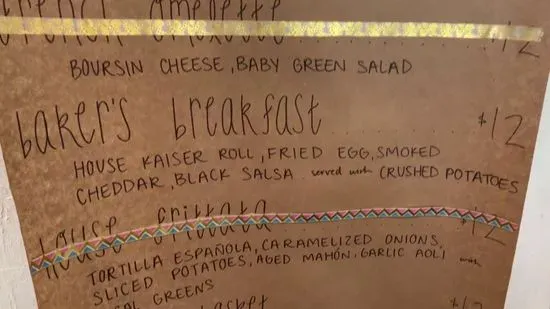 french omelette 12
BOURSIN CHEESE, BABY GREEN SALAD
baker's breakfast $12
HOUSE KAISER ROLL, FRIED EGG, SMOKED
CHEDDAR, BLACK SALSA served with CRUSHED POTATOES
house frittata $12
TORTILLA ESPAÑOLA, CARAMELIZED ONIONS,
SLICED POTATOES, AGED MAHÓN, GARLIC AOLI with
GREENS